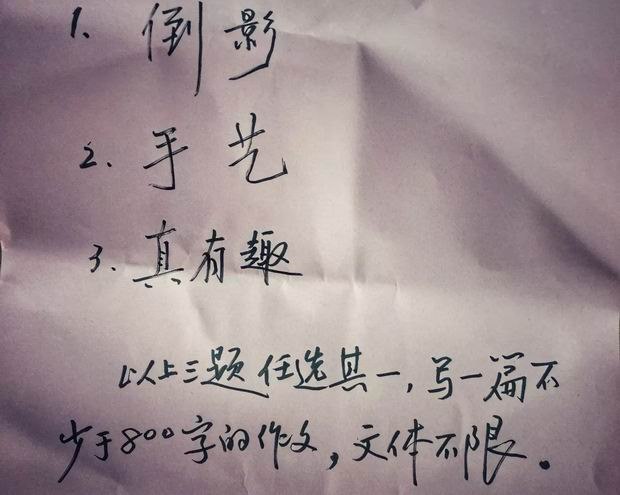 1、倒影
2、手艺
3、真有趣
以上三题任选其一，写一篇不
少于800字的作文，文体不限。